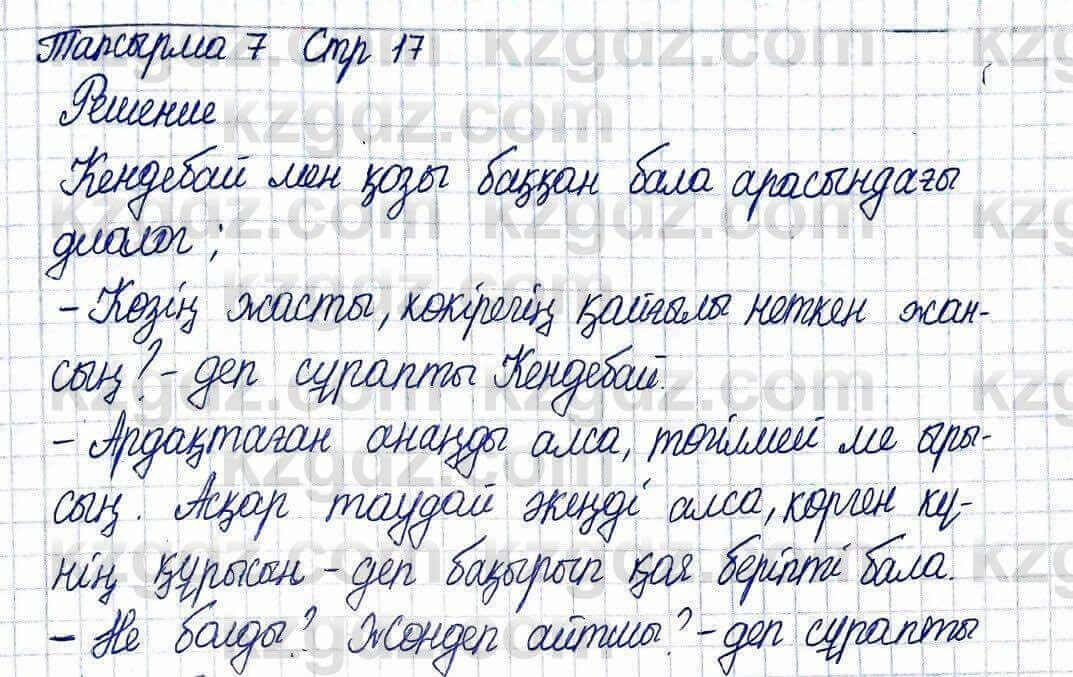 Тапсырма 7 Стр 17
Решение
Кендебай мен қозы баққан бала арасындағы
диалог;
- Көзің жасты, көкірегің қайғылы неткен жан-
сың? - деп сұрапты Кендебай.
- Ардақтаған анаңды алса, төгілмей ме ыры-
сың. Асқар таудай әкеңді алса, көрген кү-
нің құрысын - деп бақырып қоя беріпті бала.
- Не болды? Жөндеп айтшы? - деп сұрапты